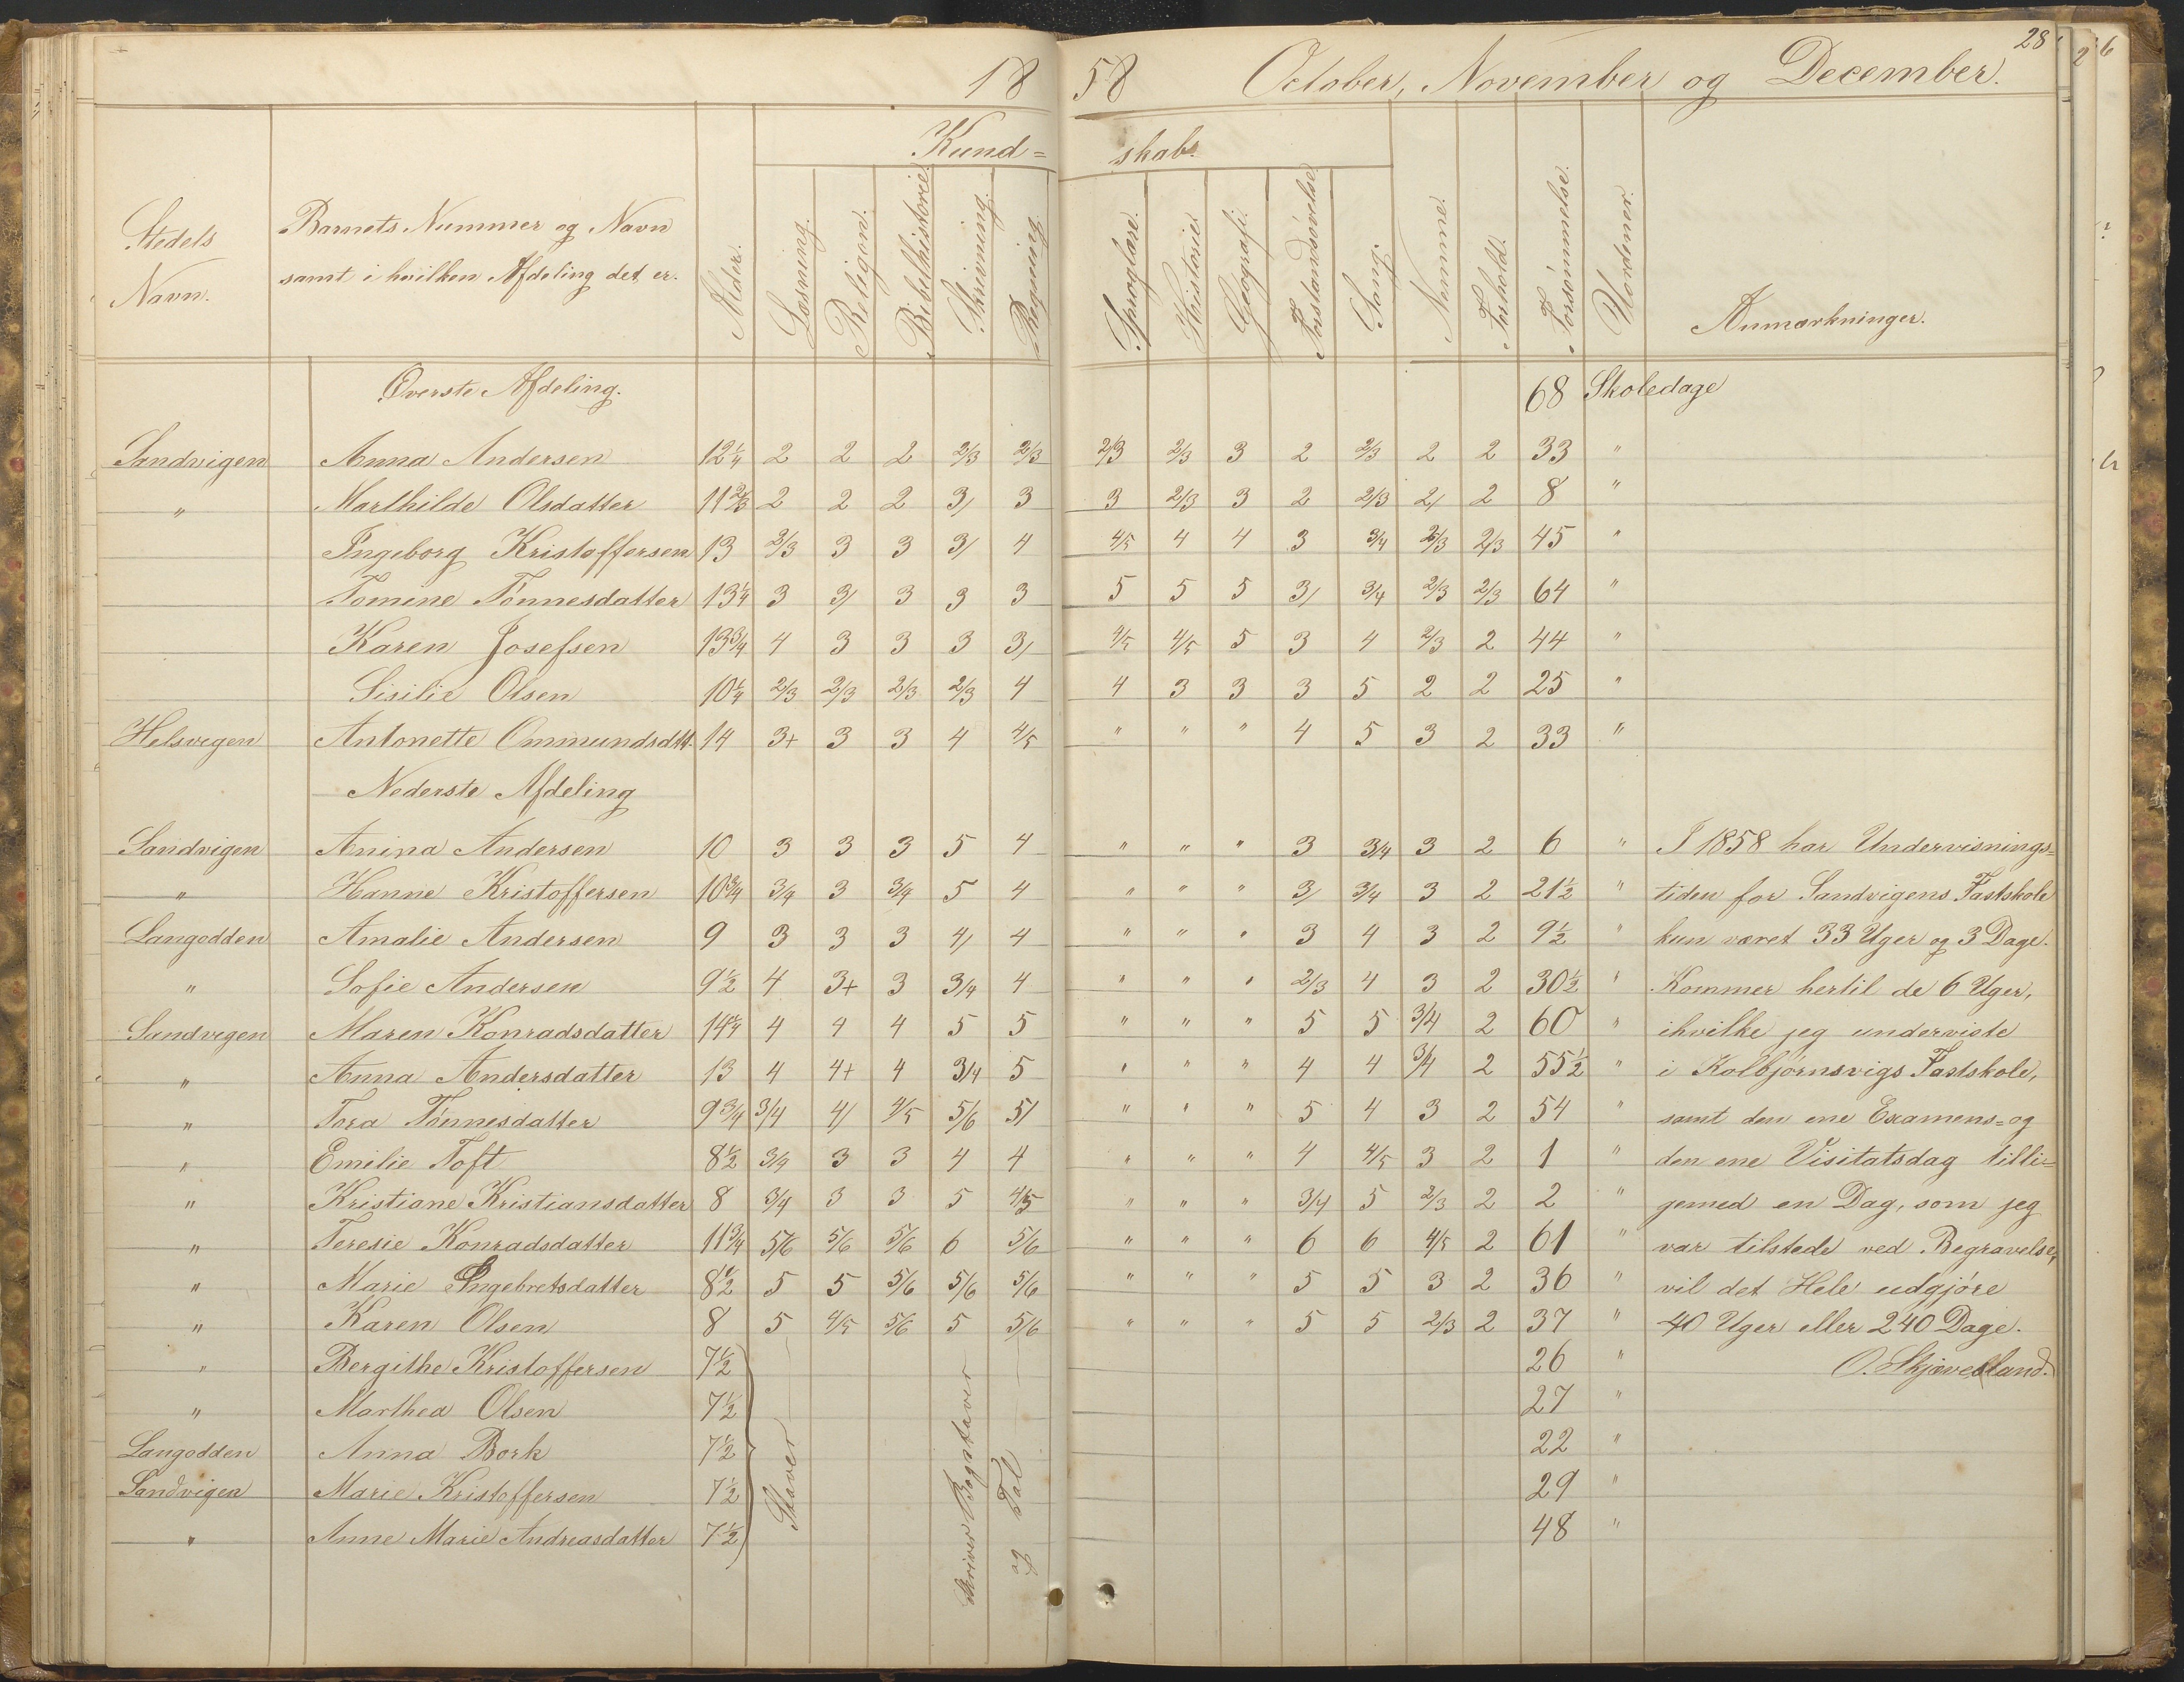 28
1858 October, November og December.
Kund=skabs
Stedets Navn. Barnets Nummer og Navn samt i hvilken Afdeling det er. Alder. Læsning. Religion. Bibelhistorie. Skrivning. Regning. Sproglære. Historie. Geografi. Forstandsøvelse. Sang. Nemme. Forhold. Forsømmelse. Uordener. Anmærkninger.
Øverste Afdeling. 68 Skoledage
Sandvigen Anna Andersen 12 1/4 2 2 2 2/3 2/3 2/3 2/3 3 2 2/3 2 2 33 "
" Marthilde Olsdatter 11 2/3 2 2 2 3/ 3 3 2/3 3 2 2/3 2/ 2 8 "
Ingeborg Kristoffersen 13 2/3 3 3 3/ 4 4/5 4 4 3 3/4 2/3 2/3 45 "
Tomine Tönnesdatter 13 1/4 3 3/ 3 3 3 5 5 5 3/ 3/4 2/3 2/3 64 "
Karen Josefsen 13 3/4 4 3 3 3 3/ 4/5 4/5 5 3 4 2/3 2 44 "
Sisilie Olsen 10 1/4 2/3 2/3 2/3 2/3 4 4 3 3 3 5 2 2 25 "
Helsvigen Antonette Ommundsdtt. 14 3+ 3 3 4 4/5 " " " 4 5 3 2 33 "
Nederste Afdeling
Sandvigen Anina Andersen 10 3 3 3 5 4 " " " 3 3/4 3 2 6 " I 1858 har Undervisnings=
" Hanne Kristoffersen 10 3/4 3/4 3 3/4 5 4 " " " 3/ 3/4 3 2 21 1/2 " tiden for Sandvigens Fastskole
Langodden Amalie Andersen 9 3 3 3 4/ 4 " " " 3 4 3 2 9 1/2 " kun været 33 Uger og 3 Dage.
" Sofie Andersen 9 1/2 4 3+ 3 3/4 4 " " " 2/3 4 3 2 30 1/2 " Kommer hertil de 6 Uger,
Sandvigen Maren Konradsdatter 14 1/4 4 4 4 5 5 " " " 5 5 3/4 2 60 " ihvilke jeg underviste
" Anna Andersdatter 13 4 4+ 4 3/4 5 " " " 4 4 3/4 2 55 1/2 " i Kolbjørnsvigs Fastskole,
" Tora Tönnesdatter 9 3/4 3/4 4/ 4/5 5/6 5/ " " " 5 4 3 2 54 " samt den ene Examens= og
" Emilie Toft 8 1/2 3/4 3 3 4 4 " " " 4 4/5 3 2 1 " den ene Visitatsdag tilli=
" Kristiane Kristiansdatter 8 3/4 3 3 5 4/5 " " " 3/4 5 2/3 2 2 " gemed en Dag, som jeg
" Teresie Konradsdatter 11 3/4 5/6 5/6 5/6 6 5/6 " " " 6 6 4/5 2 61 " var tilstede ved Begravelse,
" Marie Ingebretsdatter 8 1/2 5 5 5/6 5/6 5/6 " " " 5 5 3 2 36 " vil det Hele udgjøre
" Karen Olsen 8 5 4/5 5/6 5 5/6 " " " 5 5 2/3 2 37 " 40 Uger eller 240 Dage.
" Bergithe Kristoffersen 7 1/2 26 " O. Skjævesland.
" Marthea Olsen 7 1/2 27 "
Langodden Anna Bork 7 1/2 22 "
Sandvigen Marie Kristoffersen 7 1/2 29 "
" Anne Marie Andreasdatter 7 1/2 48 "
Staver
Skriver Bogstaver
og Tal